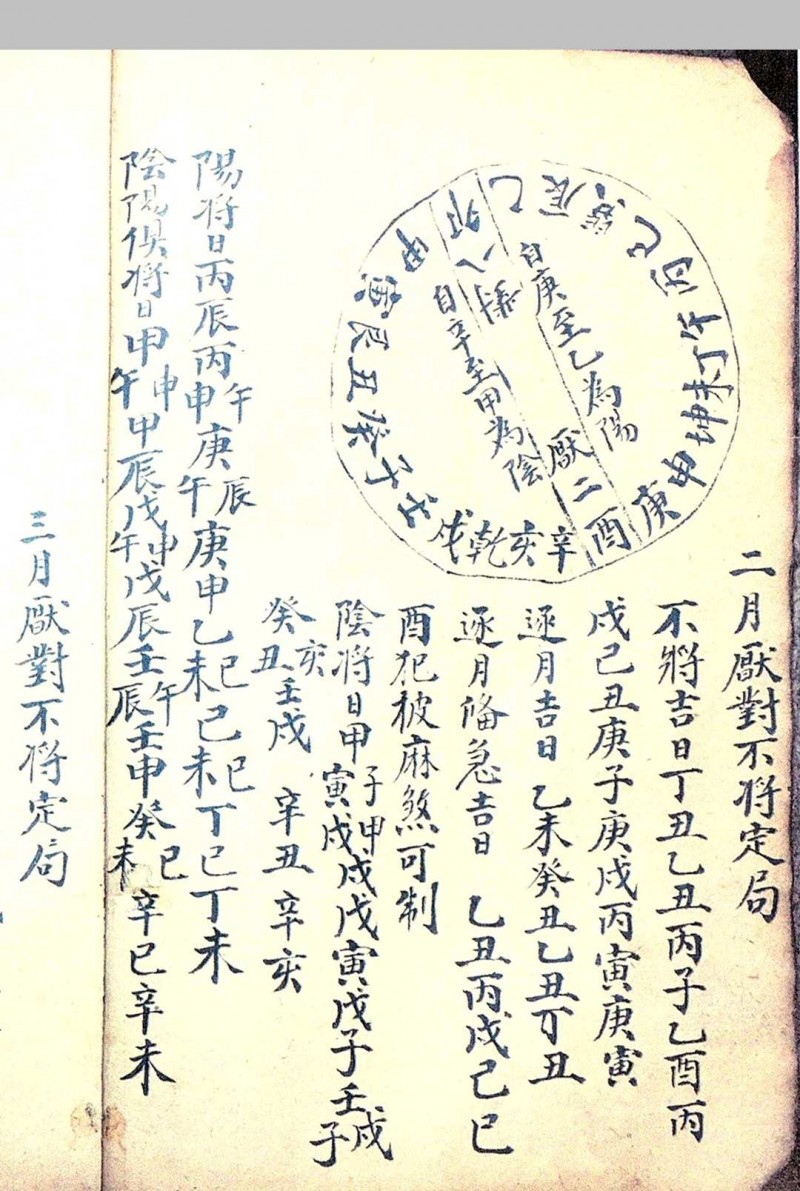 二月厭對不将定局
卯乙辰巽巳丙午丁未坤申庚酉辛亥乾戌壬子癸丑艮寅甲
自庚至乙為陽
厭二
八
自辛至甲為陰
不將吉日丁丑乙丑丙子乙酉丙
戌己丑庚子庚戌丙寅庚寅
逐月吉日 乙未癸丑乙丑丁丑
逐月偹急吉日 乙丑丙戌己巳
酉犯披麻煞可制
陰将日甲子寅甲戌戌戊寅戊子壬戌子
癸亥丑壬戌 辛丑 辛亥
陽将日丙辰丙午申庚辰午庚申乙巳未己巳未丁巳丁未
陰陽俱将日甲申午甲辰戊申午戊辰壬午辰壬申癸巳未辛巳辛未
三月厭對不将定局